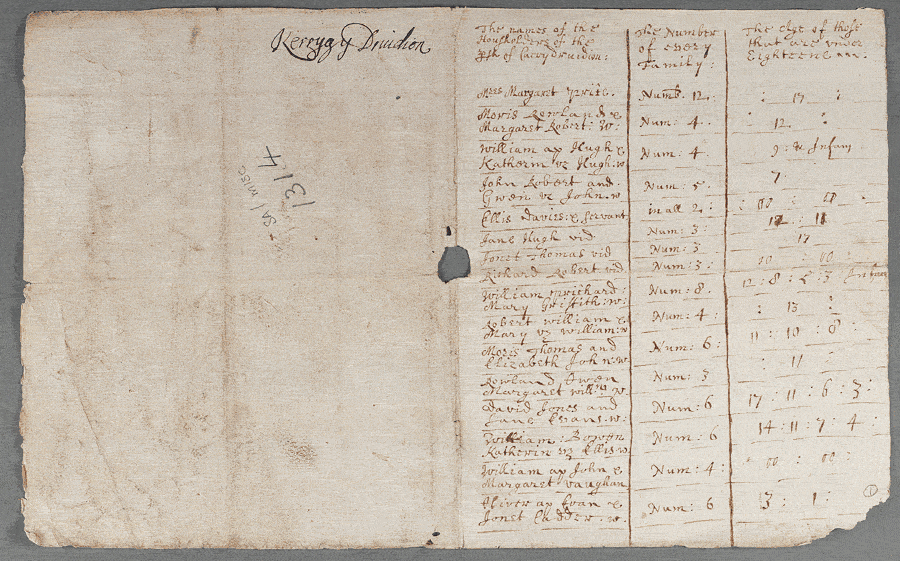 Kerrygy Druidion
SA / MISC
1314
The names of the
Housholders of the
pish of Cerrydruidion:
The Number
of every
Family:
The Age of those
that are under
Eighteen
Mres Margaret price.
Numb. 12.
: 17 :
Moris Rowland &
Margaret Robert: W:
Num: 4.
: 12. :
William ap Hugh &
Katherin vz Hugh. w
Num: 4.
9: & Infan
John Robert and.
Gwen vz John. w
Num: 5.
7.
Ellis Davies: & servant
in all 2:
: 00 : 00
Jane Hugh vid
Num: 3:
: 18
Jonet Thomas vid
Num: 3
17
Richard Robert vid
Num: 3:
00 : 00 :
William Prichard:
Mary Griffith: w:
Num: 8.
12 : 8 : 5 : 3 Infan
Robert william &
Mary vz william: w
Num: 4:
: 13 :
Moris Thomas and
Elizabeth John: w.
Num: 6:
11 : 10 : 8 :
Rowland Owen
Margaret will: w.
Num: 3
: 11 :
David Jones and
Jane Evans. w:
Num: 6
17 : 11 : 6 : 3 :
William: Bowen
Katherin vz Ellis w
Num: 6
14 : 11 : 7 : 4 :
William ap John &
Margaret Vaughan
Num: 4:
: 00 : 00 :
Oliver ap Evan &
Jonet Cadder. w.
Num: 6
3 : 1 :
1